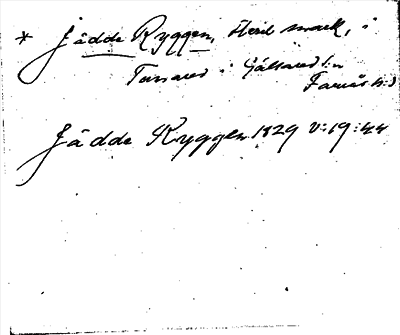 * Jädde Ryggen, Hed mark, i
Tarared i Gällared sn
Faurås hd
Jädde Ryggen 1829 v: 19: 44